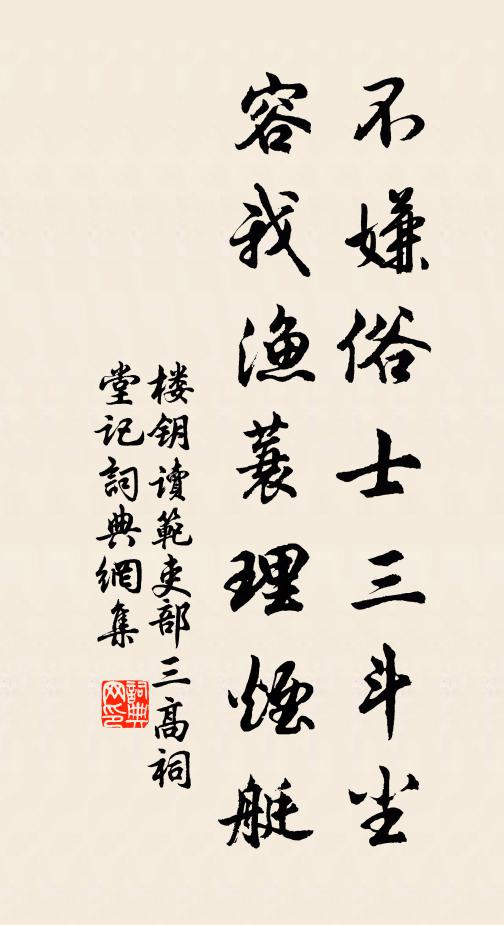 不嫌俗士三斗尘
容我渔蓑理烟艇
楼钥读范吏部三高祠
堂记词典网集
词典网印